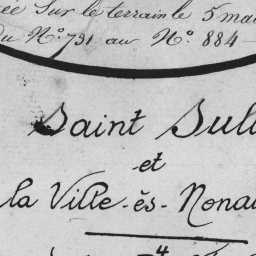 ée Sur le terrain le 5 mai
du N° 731 au N° 884
Saint Sul
et
la Ville-ès-Nona